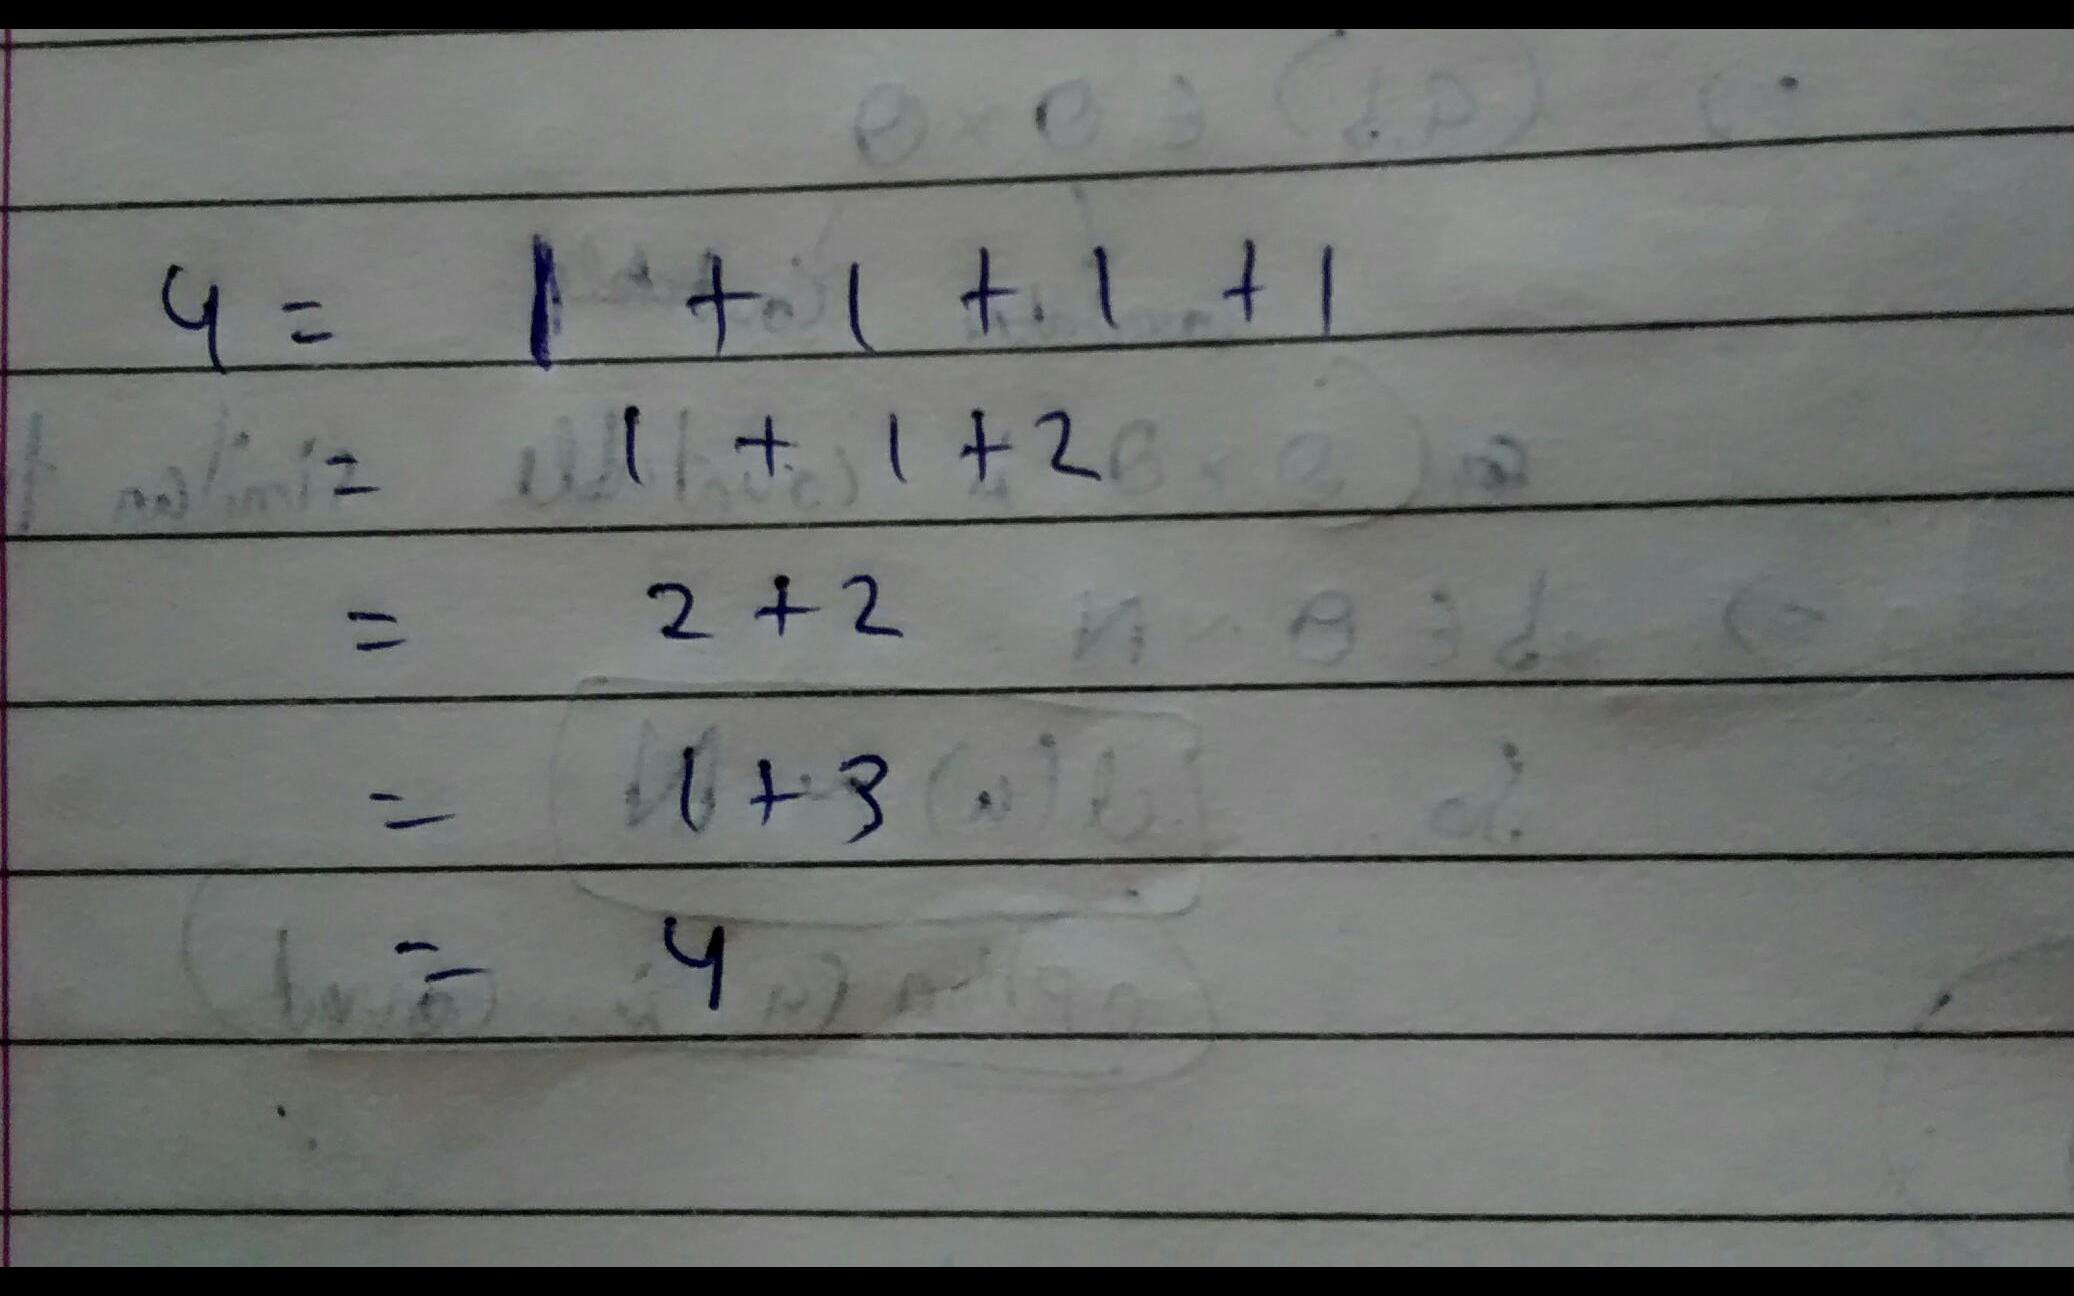 4 = 1 + 1 + 1 + 1
= 1 + 1 + 2
= 2 + 2
= 1 + 3
= 4